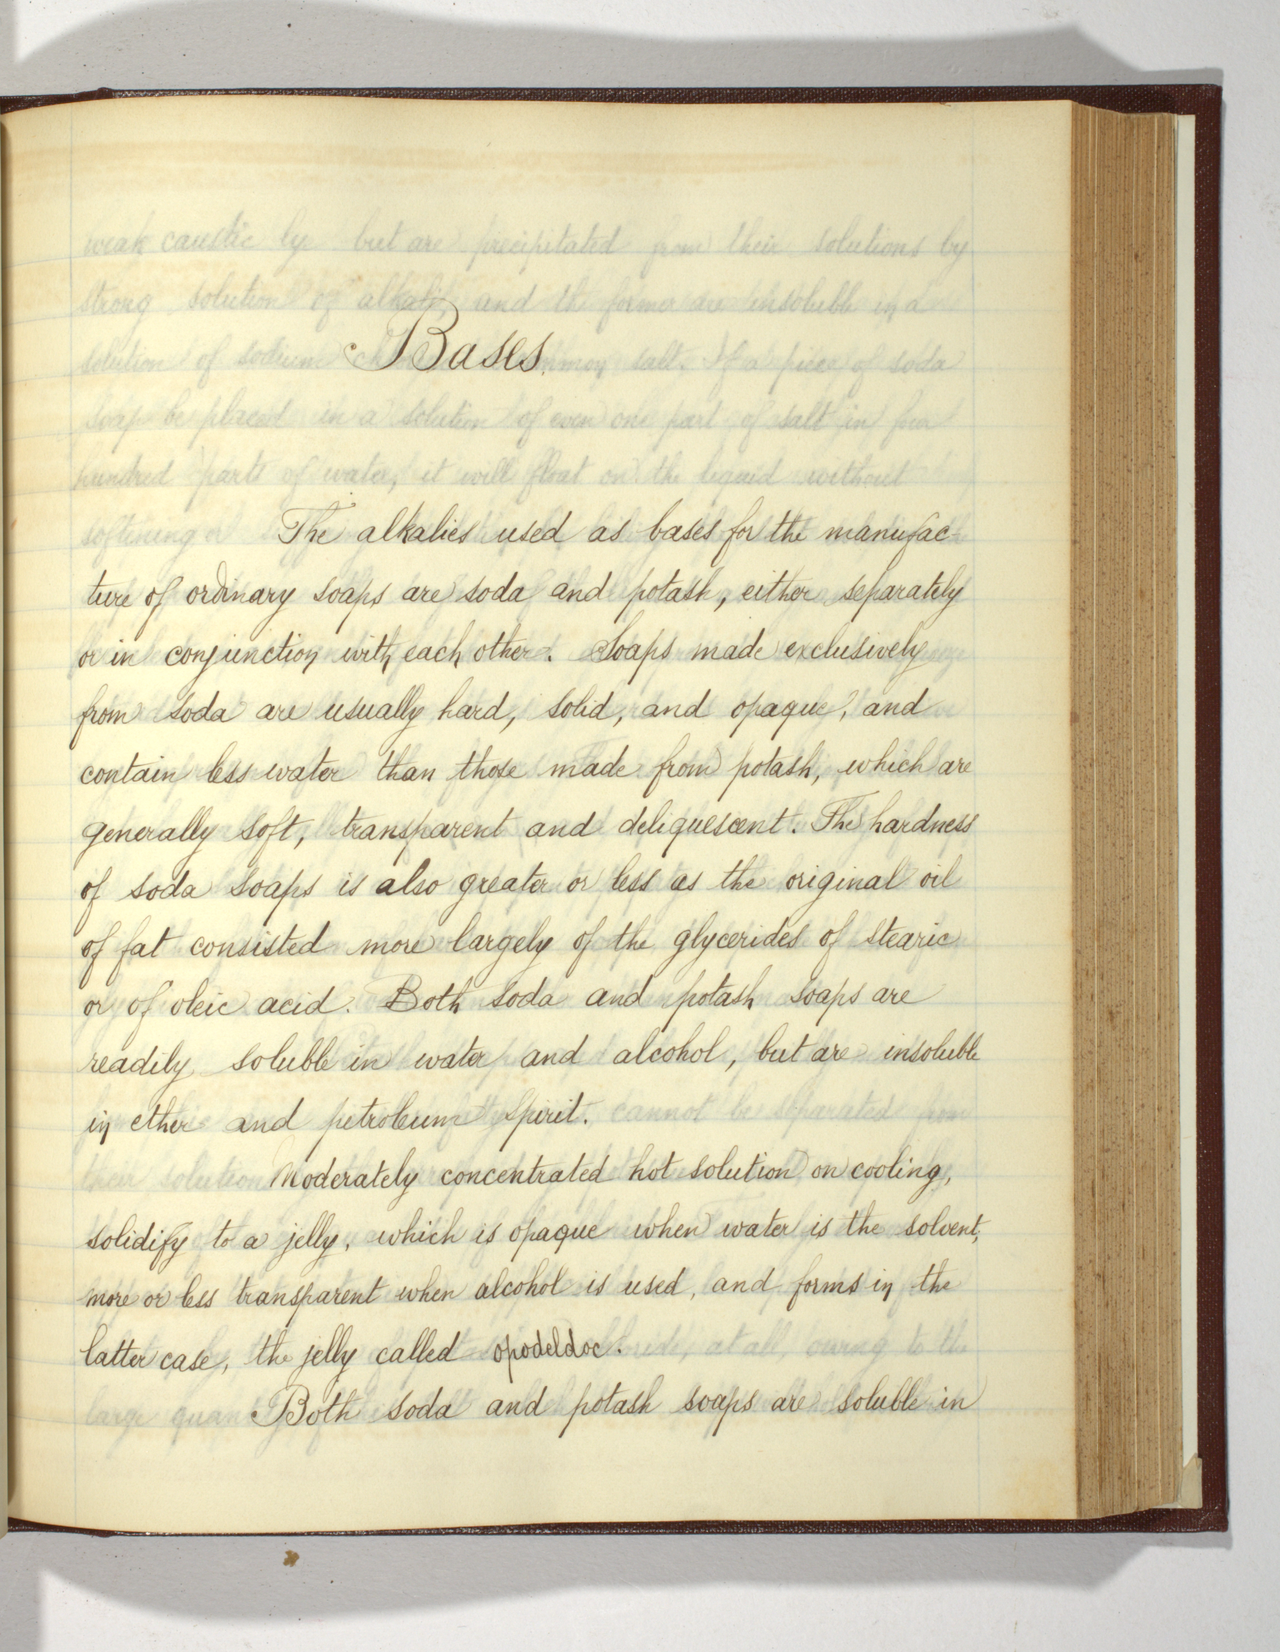 Bases.
The alkalies used as bases for the manufac-
ture of ordinary soaps are soda and potash, either separately
or in conjunction with each other. Soaps made exclusively
from soda are usually hard, solid, and opaque, and
contain less water than those made from potash, which are
generally soft, transparent and deliquescent. The hardness
of soda soaps is also greater or less as the original oil
of fat consisted more largely of the glycerides of stearic
or of oleic acid. Both soda and potash soaps are
readily soluble in water and alcohol, but are insoluble
in ether and petroleum spirit.
Moderately concentrated hot solution on cooling,
solidify to a jelly, which is opaque when water is the solvent,
more or less transparent when alcohol is used, and forms in the
latter case, the jelly called opodeldoc.
Both soda and potash soaps are soluble in